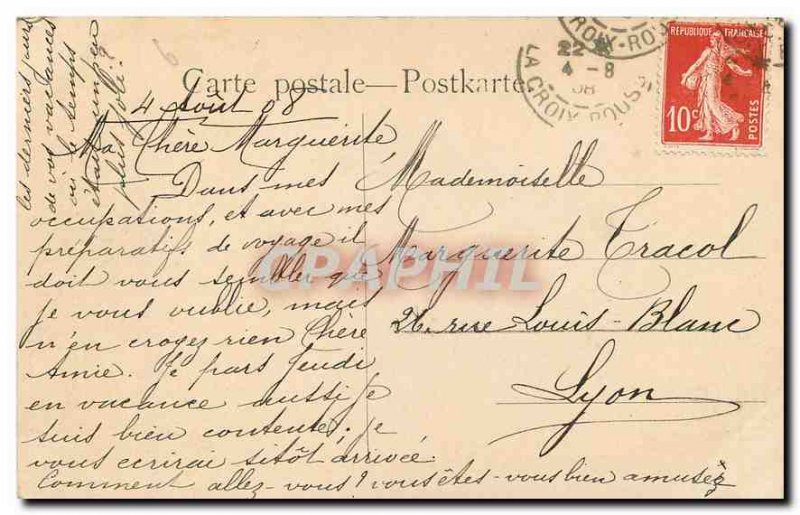 Carte postale — Postkarte
4 Août 08
Ma Chère Marguerite
Dans mes
occupations, et avec mes
préparatifs de voyage il
doit vous sembler que
je vous oublie, mais
n'en croyez rien Chère
Amie. Je pars Jeudi
en vacance aussi je
suis bien contente; je
vous écrirai sitôt arrivée.
Comment allez-vous? vous êtes-vous bien amusez
les derniers jours
de vos vacances
où le temps
était un peu
plus joli?
Mademoiselle
Marguerite Tracol
26, rue Louis-Blanc
Lyon
REPUBLIQUE FRANÇAISE
10c
POSTES
LA CROIX-ROUSSE
22
4-8
08
CROIX-ROUS
CPAPHIL